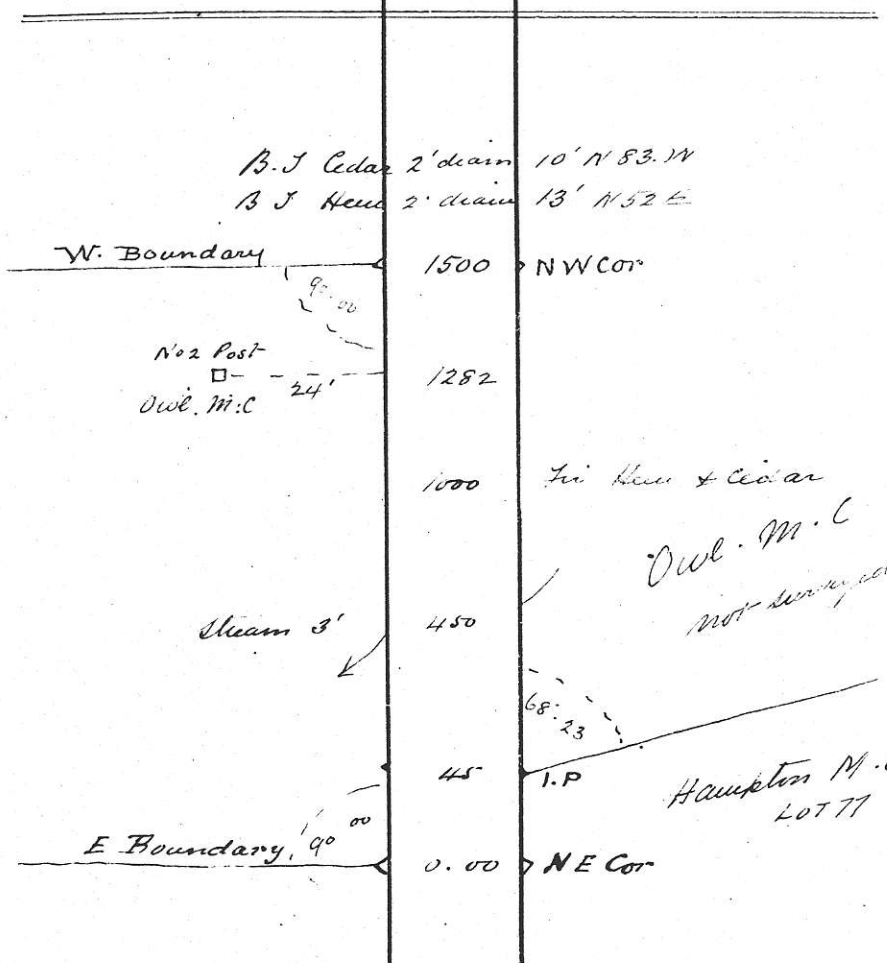 B.T Cedar 2' diam 10' N 83. W
B T Hem 2' diam 13' N 52 E
W. Boundary 1500 NW Cor
90.00
No 2 Post
24' 1282
Owl. M.C
1000 Fir Hem & Cedar
Owl. M. C
not surveyed
Stream 3' 450
68.23
45 I.P
Hampton M.
LOT 77
90 00
E Boundary 0.00 NE Cor